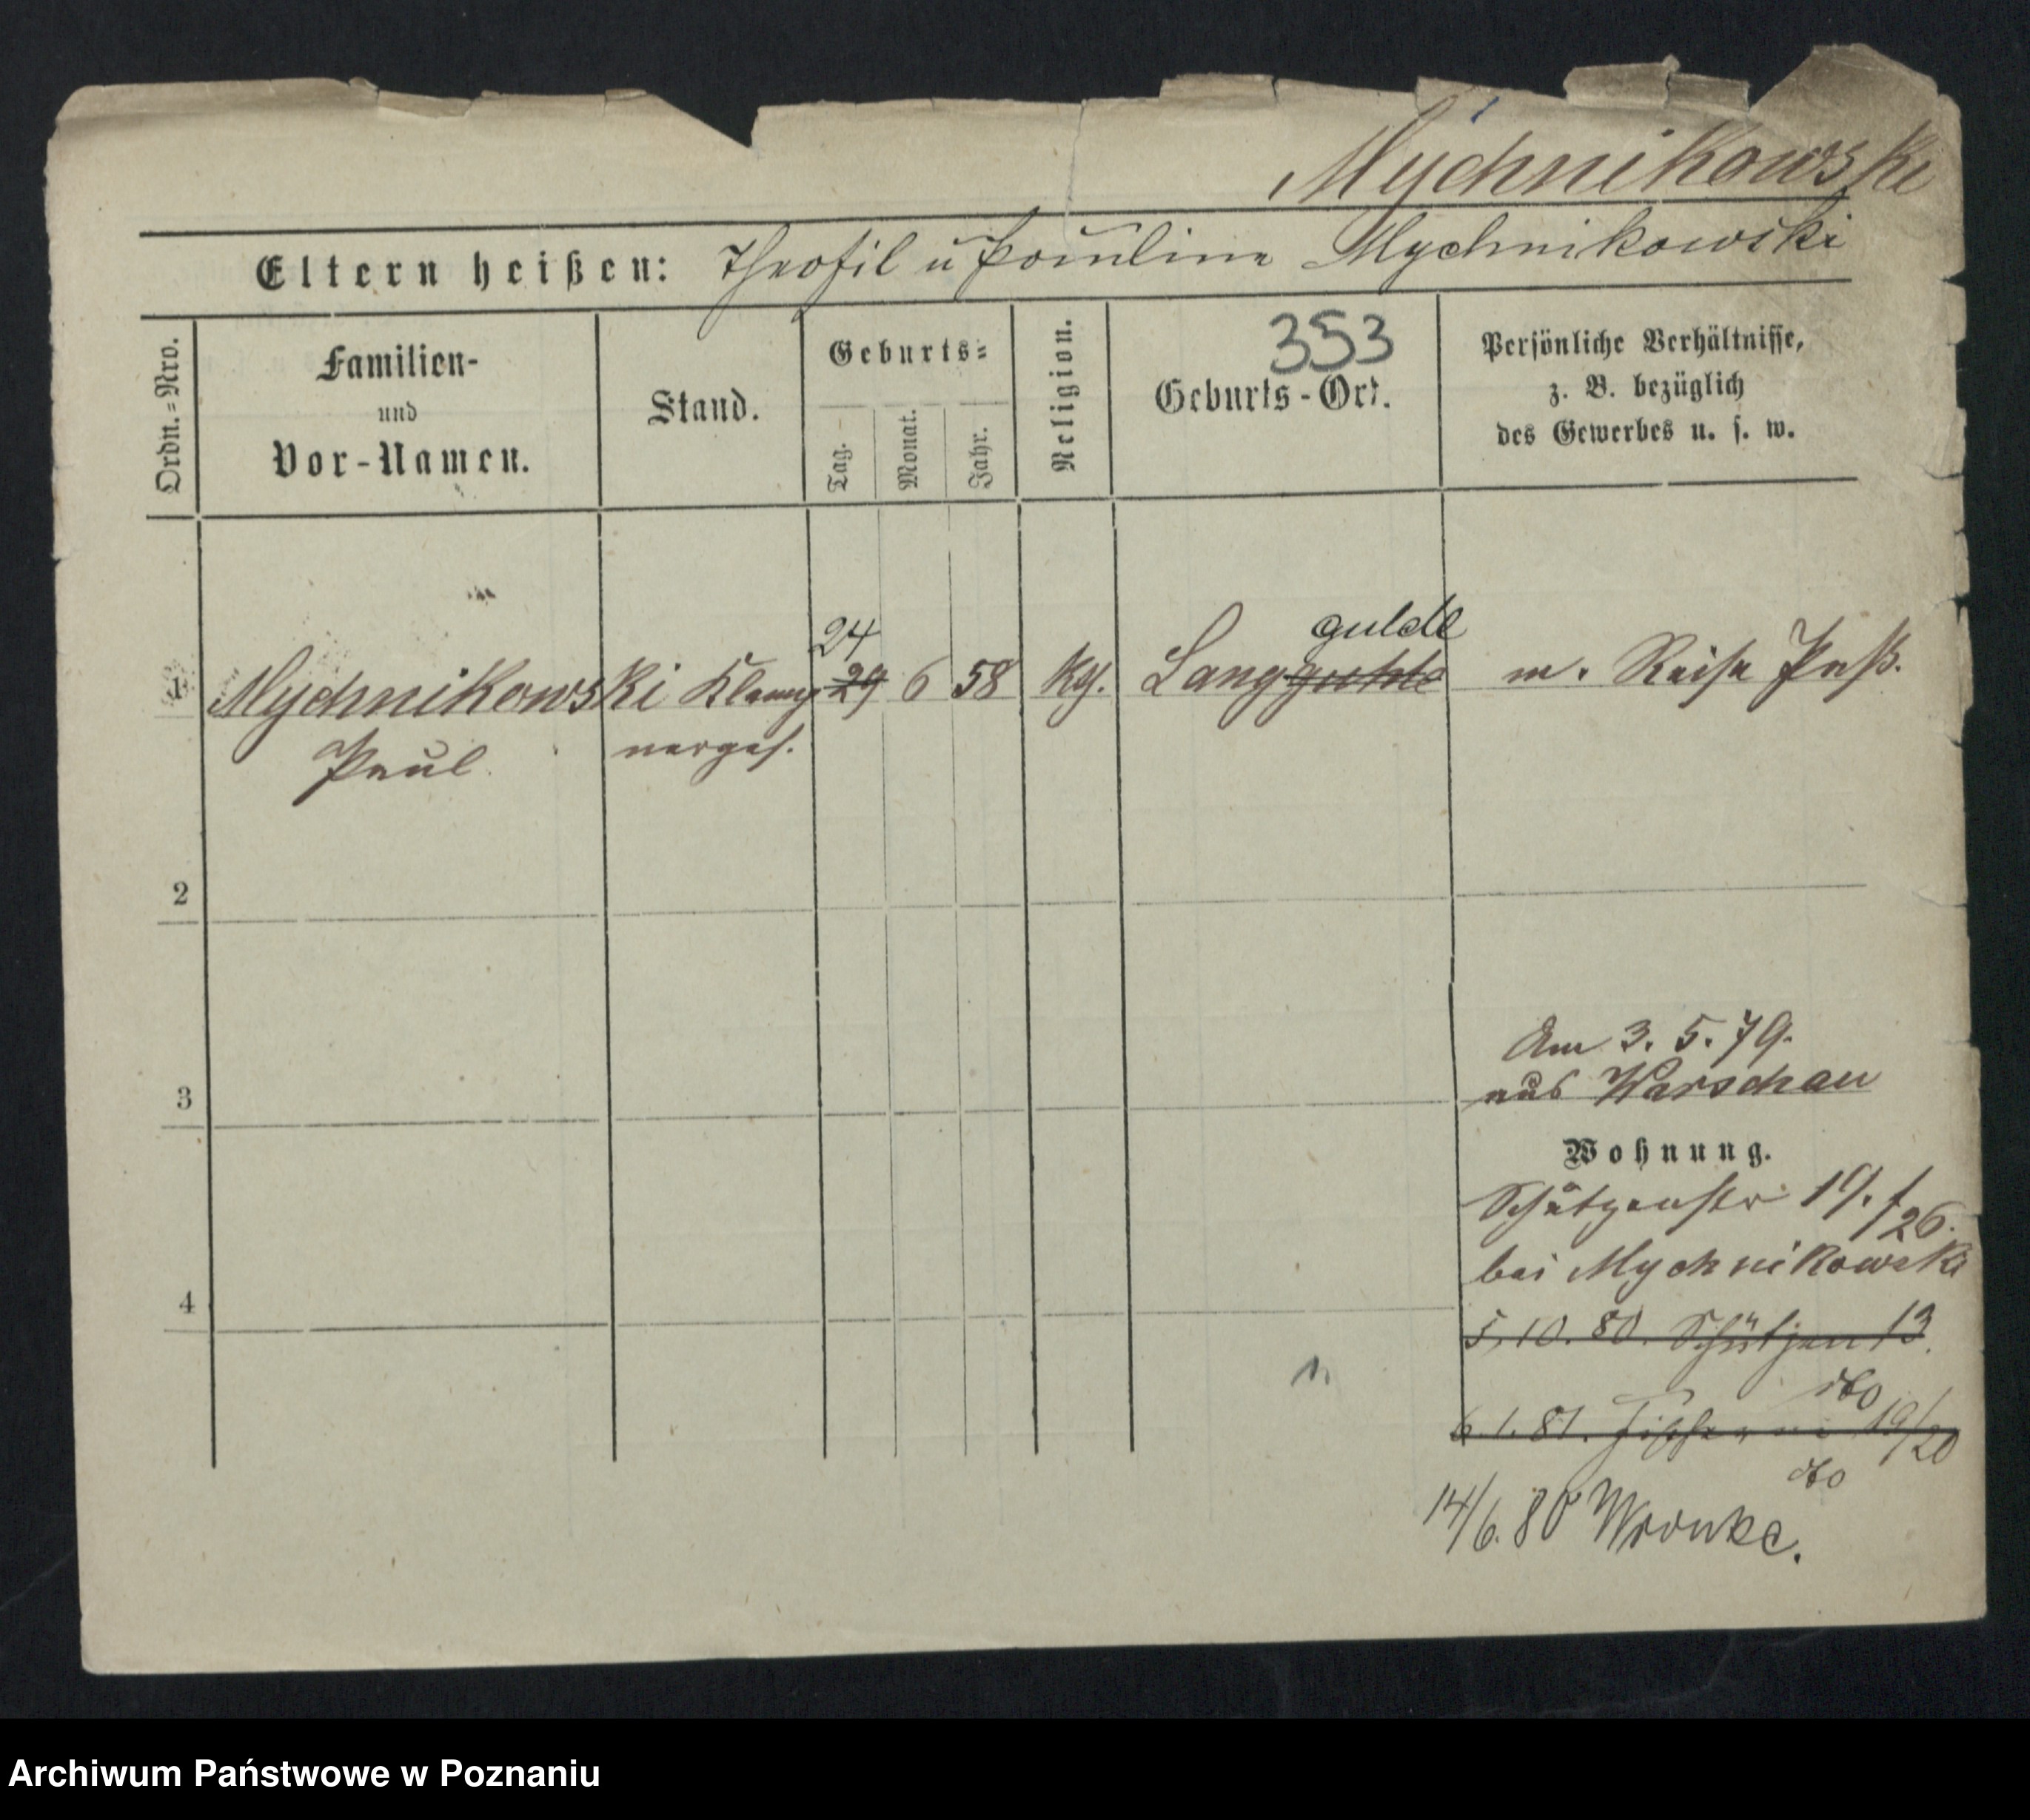 Mychnikowski
Eltern heißen: Theofil u Pauline Mychnikowski
353
Ordn.=Nro.
Familien-
und
Vor-Namen.
Stand.
Geburts=
Tag.
Monat.
Jahr.
Religion.
Geburts-Ort.
Persönliche Verhältnisse,
z. B. bezüglich
des Gewerbes u. s. w.
24
gulde
1 Mychnikowski Klemp 29 6 58 kg. Langguhle m. Reise Paß.
Paul nerges.
2
Am 3. 5. 79.
3 aus Warschau
Wohnung.
Schützenstr 19. / 26.
bei Mychnikowski
4
5.10.80. Schützen 13.
6.1.81. 19/20
14/6. 80 Wronke.
Archiwum Państwowe w Poznaniu